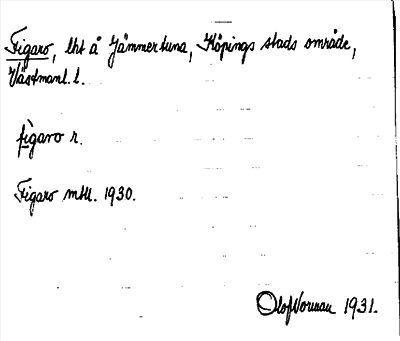 Figaro, lht å Jämmertuna, Köpings stads område,
Västmanl. l.
fìgaro r.
Figaro mtl. 1930.
Olof Norman 1931.